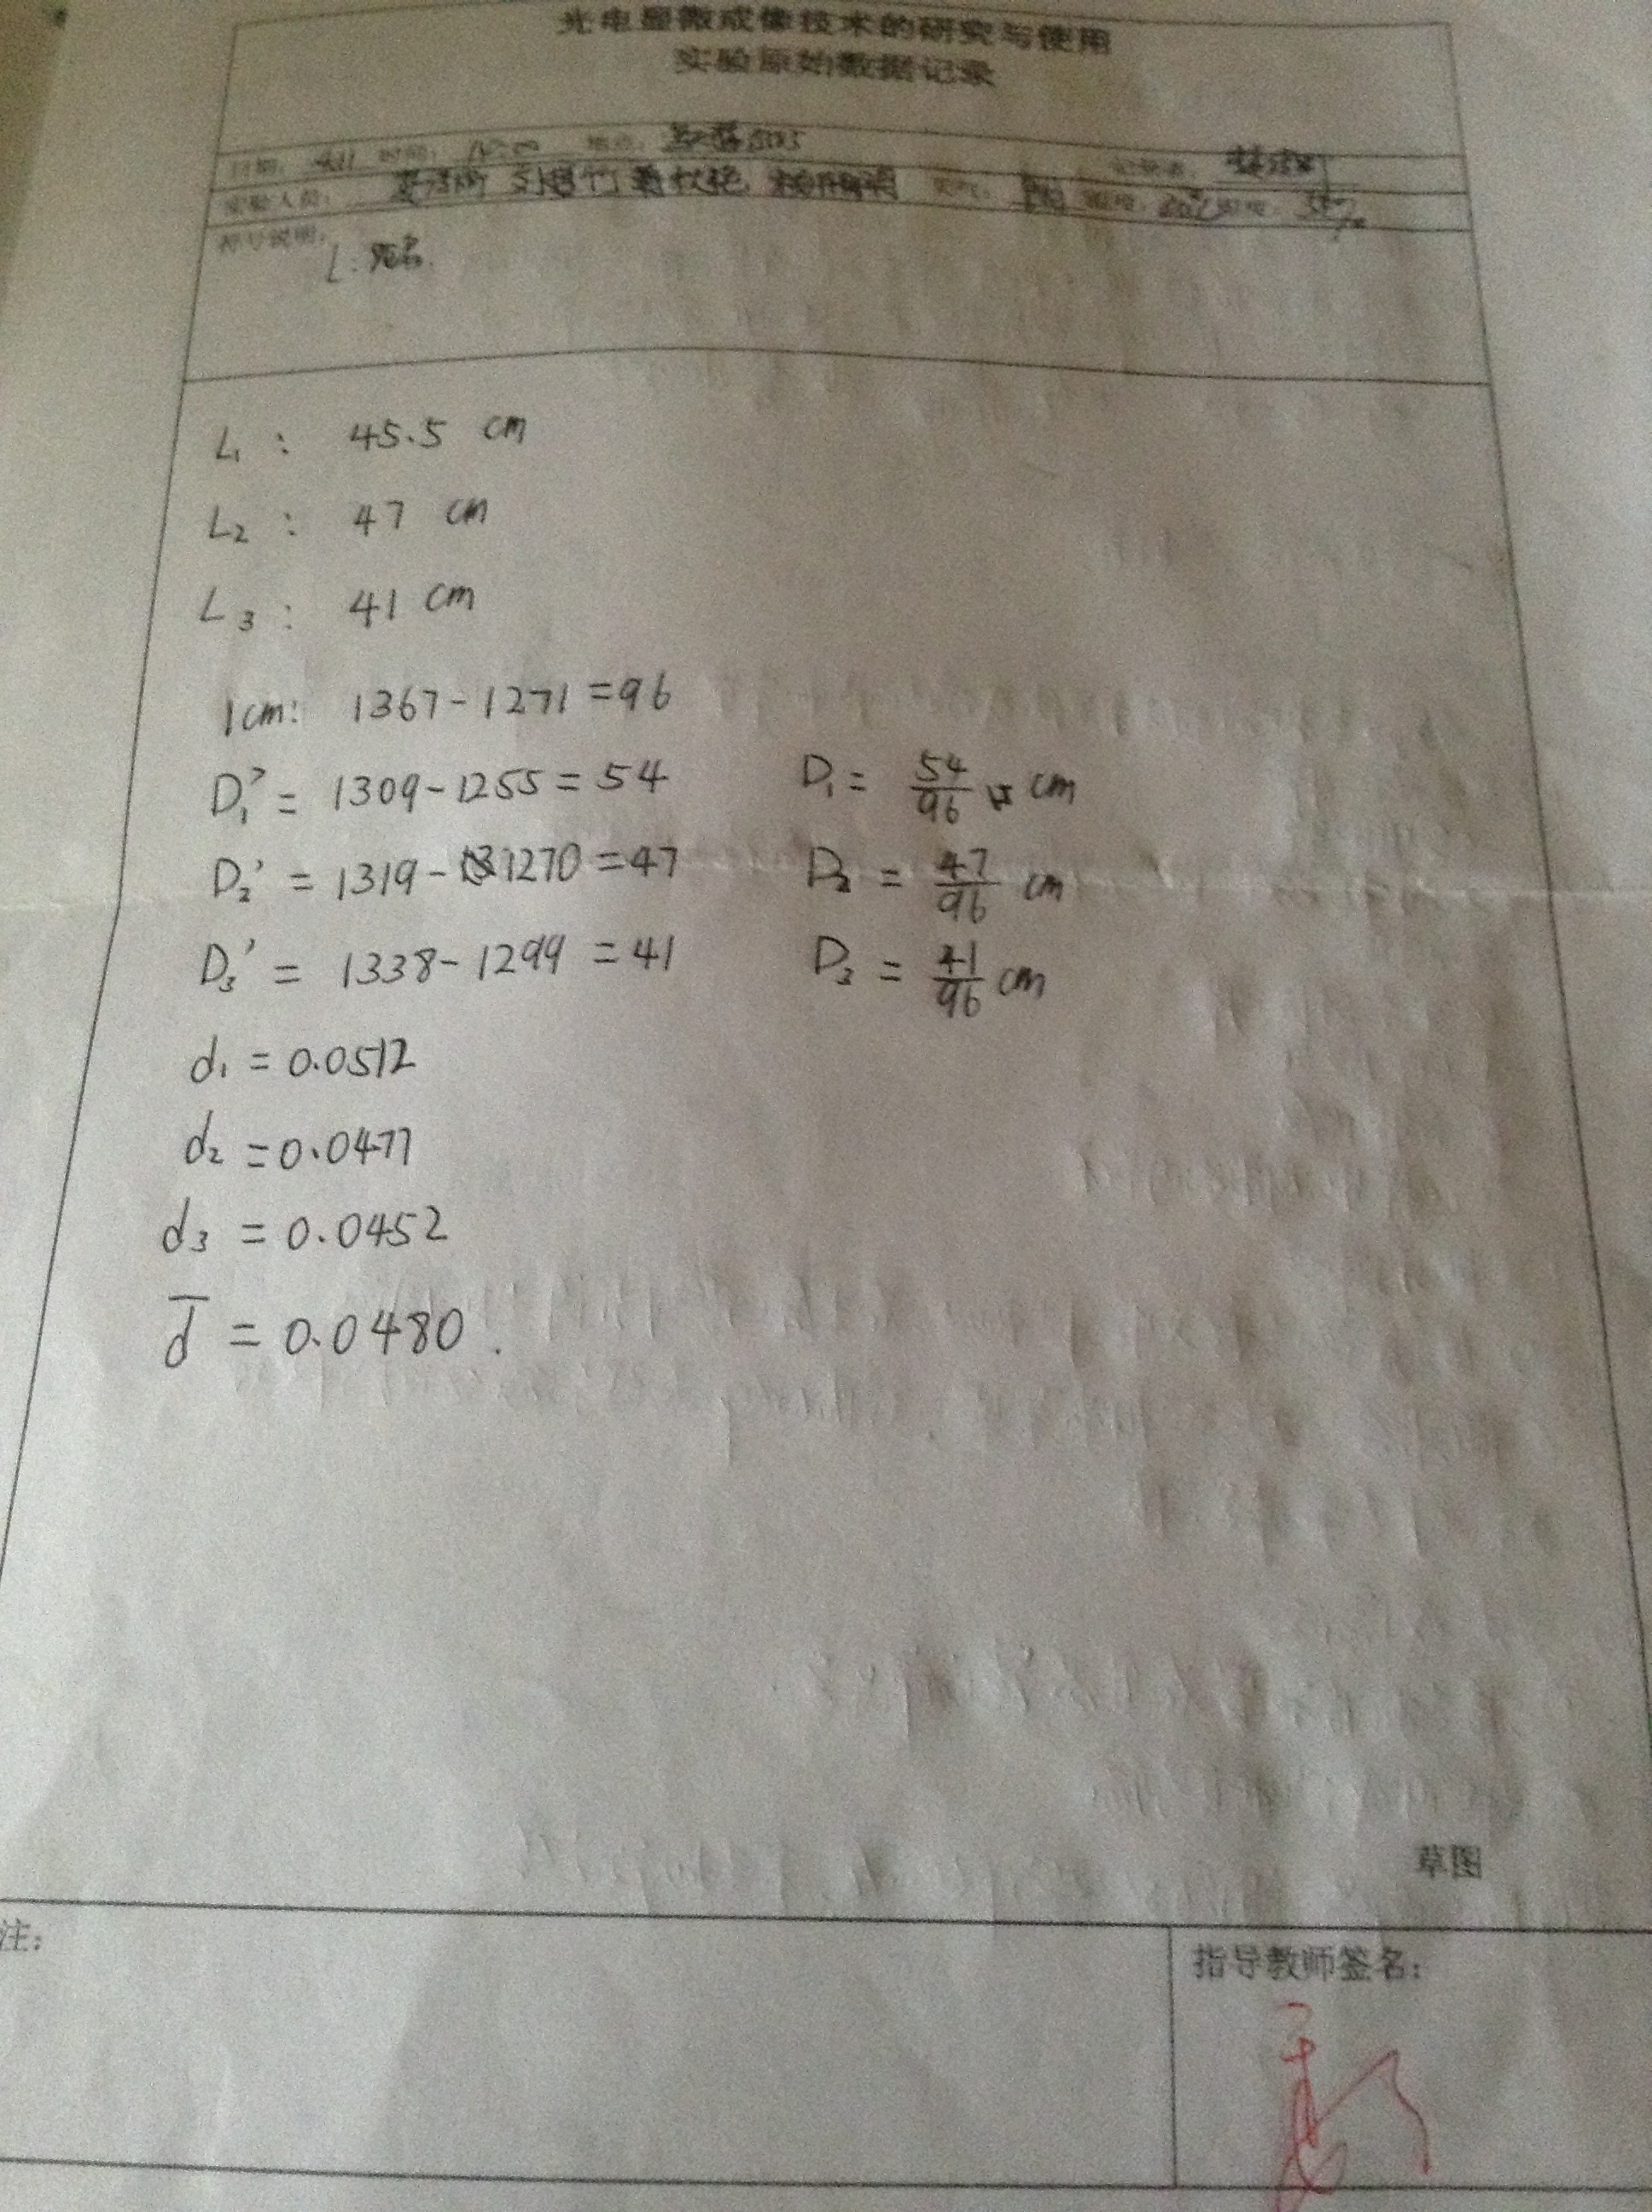 光电显微成像技术的研究与使用
实验原始数据记录
日期: 时间: 地点: 记录者:
实验人员: 天气: 温度: 湿度:
符号说明:
L:
L₁: 45.5 cm
L₂: 47 cm
L₃: 41 cm
1cm: 1367-1271=96
D₁' = 1309-1255=54 D₁ = 54/96 cm
D₂' = 1319-1270=47 D₂ = 47/96 cm
D₃' = 1338-1299=41 D₃ = 41/96 cm
d₁ = 0.0512
d₂ = 0.0477
d₃ = 0.0452
d̄ = 0.0480.
草图
注:
指导教师签名: